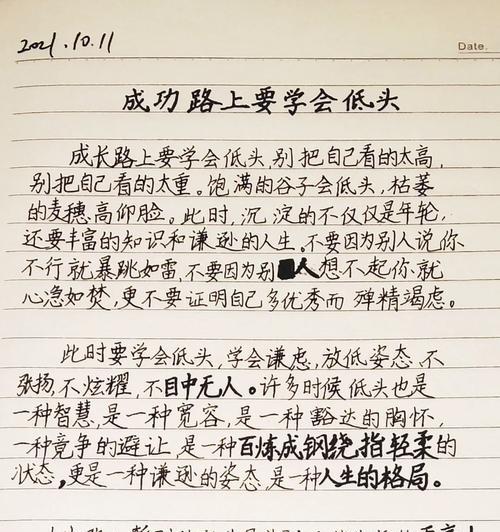 2021.10.11
Date.
成功路上要学会低头
成长路上要学会低头,别把自己看的太高,
别把自己看的太重。饱满的谷子会低头,枯萎
的麦穗高仰脸。此时,沉淀的不仅仅是年轮,
还要丰富的知识和谦逊的人生。不要因为别人说你
不行就暴跳如雷,不要因为别人想不起你就
心急如焚,更不要证明自己多优秀而殚精竭虑。
此时要学会低头,学会谦虑,放低姿态,不
张扬,不炫耀,不目中无人。许多时候低头也是
一种智慧,是一种宽容,是一种豁达的胸怀,
一种竞争的避让,是一种百炼成钢绕指轻柔的
状态,更是一种谦逊的姿态,是一种人生的格局。